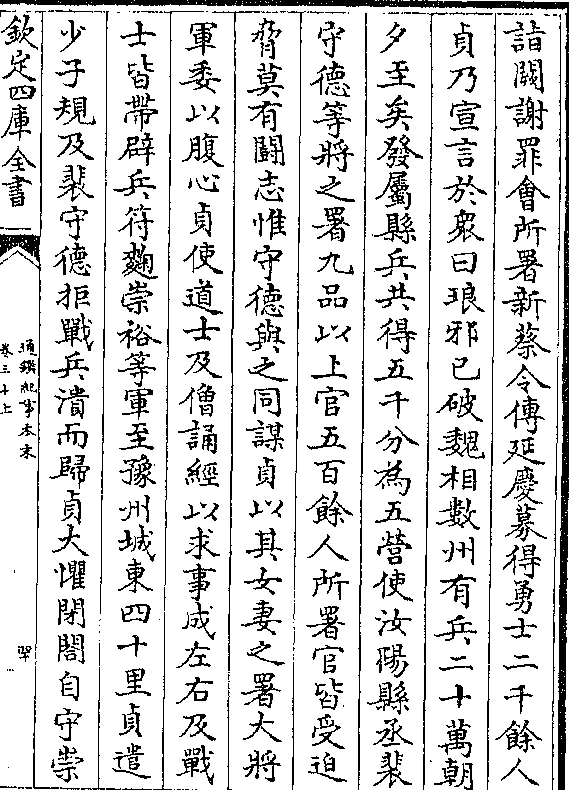 詣闕謝罪會所署新蔡令傅延慶募得勇士二千餘人
貞乃宣言於衆曰琅邪已破魏相數州有兵二十萬朝
夕至矣發屬縣兵共得五千分為五營使汝陽縣丞裴
守德等將之署九品以上官五百餘人所署官皆受迫
脅莫有鬭志惟守德與之同謀貞以其女妻之署大將
軍委以腹心貞使道士及僧誦經以求事成左右及戰
士皆帶辟兵符麴崇裕等軍至豫州城東四十里貞遣
少子規及裴守德拒戰兵潰而歸貞大懼閉閤自守崇
欽定四庫全書
通鑑紀事本末
卷三十上